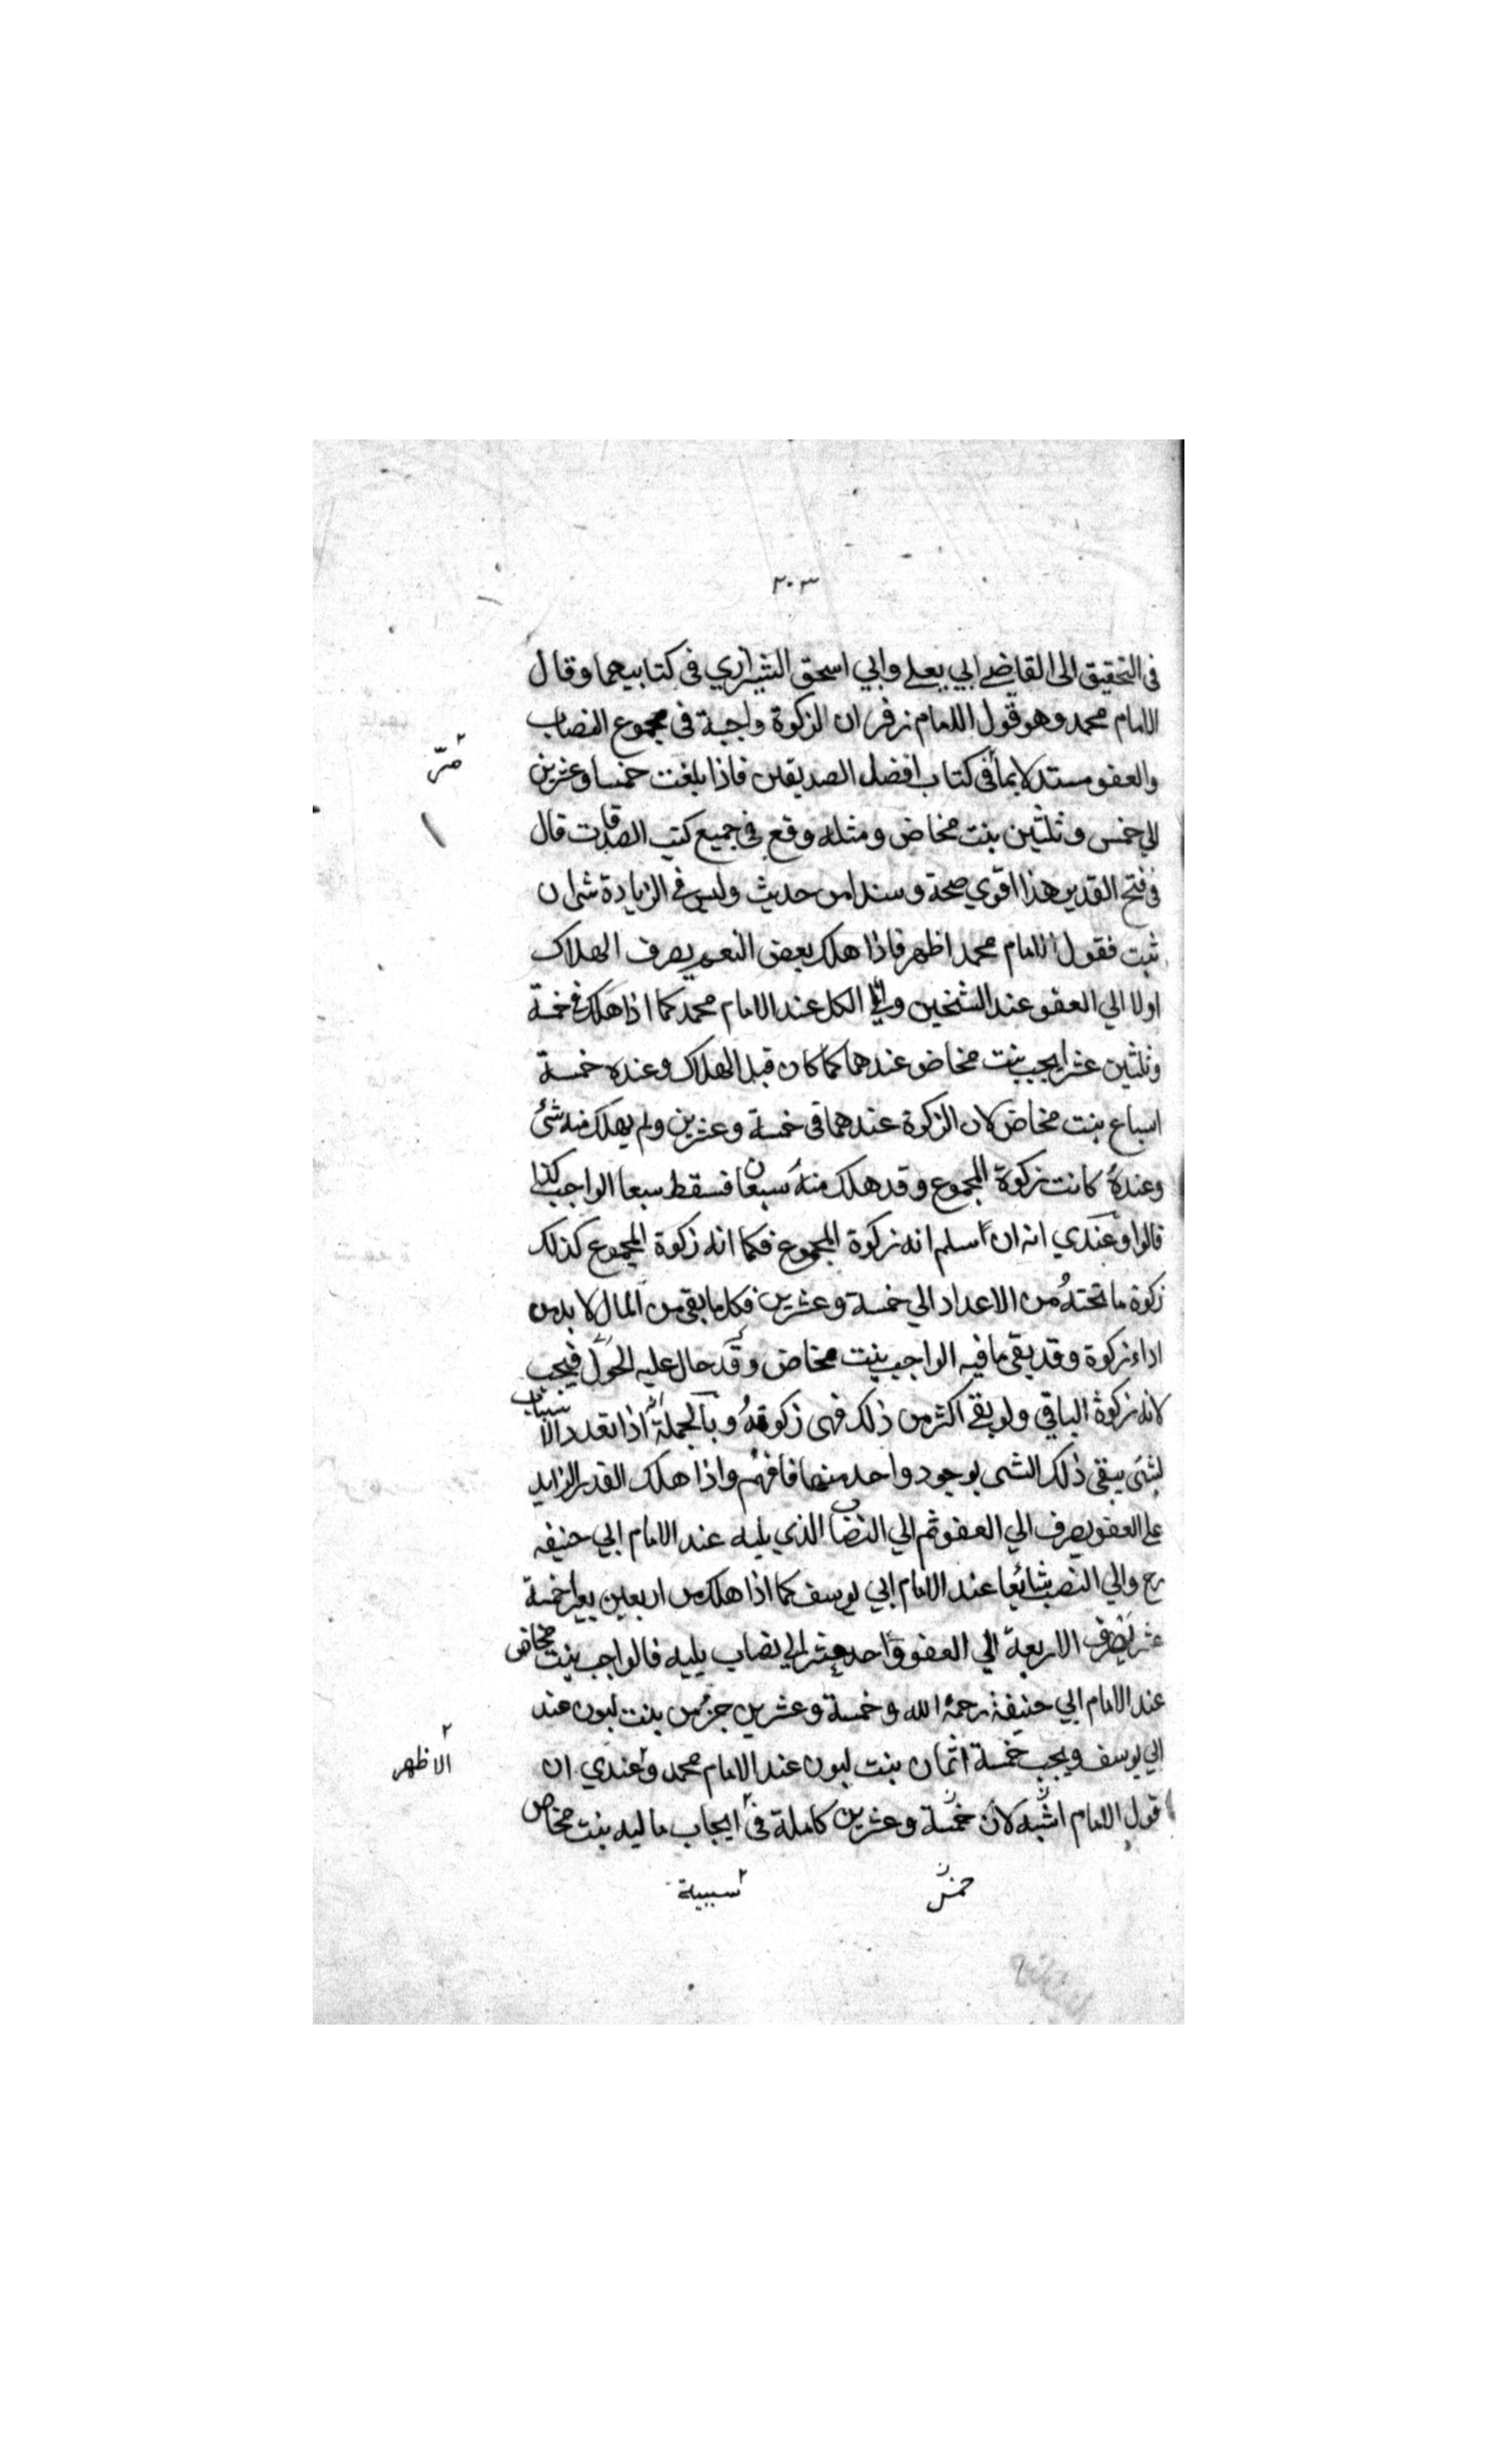 ٢٠٣
فى التحقيق الى القاضے ابي يعلے وابي اسحق الشيرازي فى كتابيهما وقال
الامام محمد وهو قول الامام زفر ان الزكوة واجبة فى مجموع النصاب
والعفو مستدلا بما فى كتاب افضل الصديقين فاذا بلغت خمسا وعشرين
الي خمس وثلثين بنت مخاض ومثله وقع فى جميع كتب الصدقات قال
فى فتح القدير هذا اقوي صحة وسندا من حديث وليس فى الزيادة شئ ان
ثبت فقول الامام محمد اظهر فاذا هلك بعض النعم يصرف الهلاك
اولا الي العفو عند الشيخين والي الكل عند الامام محمد كما اذا هلك فى خمسة
وثلثين عشر ايجب بنت مخاض عندهما كما كان قبل الهلاك وعنده خمسة
اسباع بنت مخاض لان الزكوة عندهما فى خمسة وعشرين ولم يهلك منه شئ
وعنده كانت زكوة المجموع وقد هلك منه سبعان فسقط سبعا الواجب كذا
قالوا وعندي انه ان اسلم انه زكوة المجموع فكما انه زكوة المجموع كذلك
زكوة ما تحته من الاعداد الي خمسة وعشرين فكل ما بقى من المال لا بد من
اداء زكوة وقد بقى ما فيه الواجب بنت مخاض وقد حال عليه الحول فيجب
لانه زكوة الباقي ولو بقے اكثر من ذلك فهى زكوته وبالجملة اذا تعدد الاسباب
لشئ يبقى ذلك الشى بوجود واحد منها فافهم واذا هلك القدر الزايد
على العفو يصرف الي العفو ثم الي النصاب الذي يليه عند الامام ابي حنيفه
رح والي النصب شائعا عند الامام ابي يوسف كما اذا هلك من اربعين بعيرا خمسة
عشر يصرف الاربعة الي العفو واحد عشر الي نصاب يليه فالواجب بنت مخاض
عند الامام ابي حنيفة رحمة الله وخمسة وعشرين جزء من بنت لبون عند
ابي يوسف ويجب خمسة اثمان بنت لبون عند الامام محمد وعندي ان
الاظهر
قول الامام اشبه لان خمسة وعشرين كاملة فى ايجاب ما ليه بنت مخاض
خمس
سببية